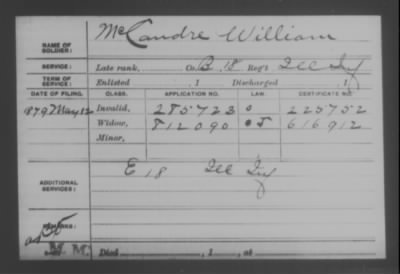 McCandre William
NAME OF SOLDIER:
SERVICE: Late rank, Co. B, 18 Reg't Ill Inf
TERM OF SERVICE: Enlisted , 1 Discharged , 1
DATE OF FILING. CLASS. APPLICATION NO. LAW. CERTIFICATE NO.
879 May 12 Invalid, 285723 0 225752
Widow, 812090 616912
Minor,
E 18 Ill Inf
ADDITIONAL SERVICES:
REMARKS:
M. M. Died , 1 , at